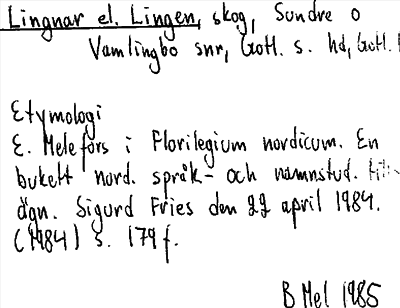 Lingnar el. Lingen, skog, Sundre o
Vamlingbo snr, Gotl. s. hd, Gotl.
Etymologi
E. Melefors i Florilegium nordicum. En
bukett nord. språk- och namnstud. till-
ägn. Sigurd Fries den 22 april 1984.
(1984) S. 179 f.
B Mel 1985